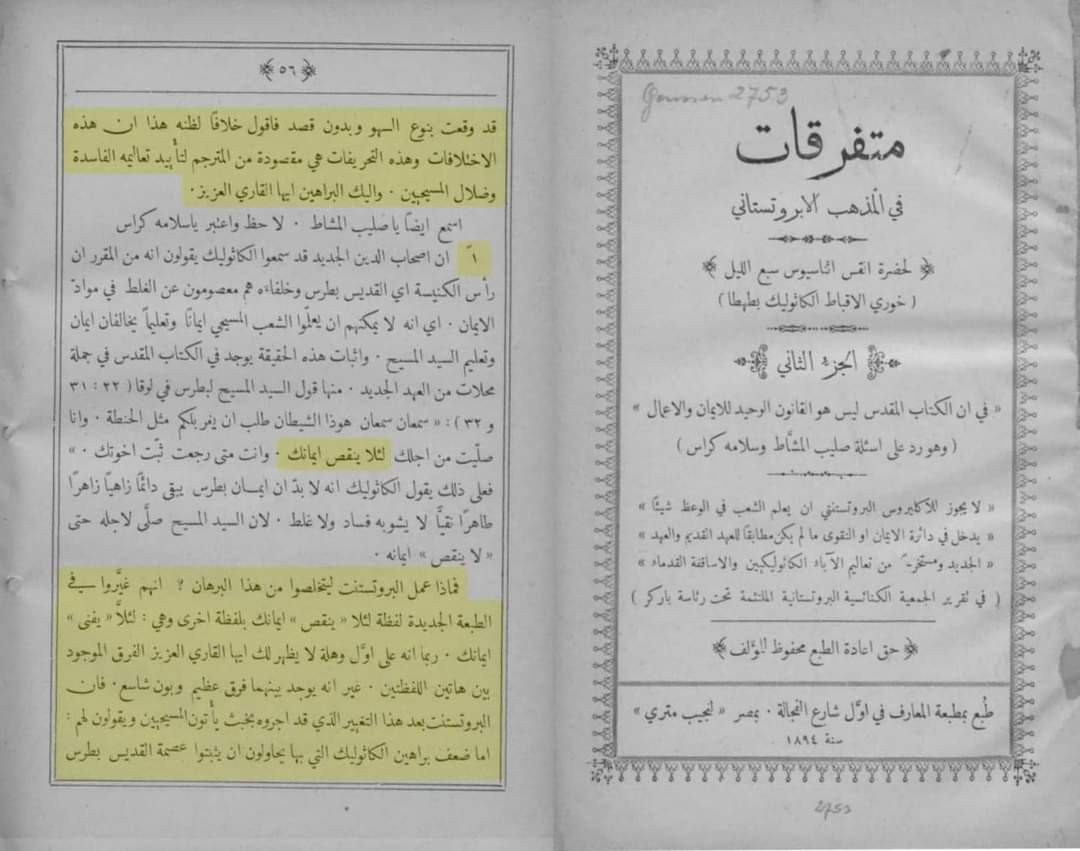 Goussen 2753
متفرقات
في المذهب الابروتستاني
لحضرة القس اثناسيوس سبع الليل
( خوري الاقباط الكاثوليك بطهطا )
الجزء الثاني
« في ان الكتاب المقدس ليس هو القانون الوحيد للايمان والاعمال »
( وهو رد على اسئلة صليب المشَّاط وسلامه كراس )
« لا يجوز للاكليروس البروتستنتي ان يعلم الشعب في الوعظ شيئًا »
« يدخل في دائرة الايمان او التقوى ما لم يكن مطابقًا للعهد القديم والعهد »
« الجديد ومستخرـًـ من تعاليم الآباء الكاثوليكيين والاساقفة القدماء »
( في تقرير الجمعية الكنائسية البروتستانية الملتئمة تحت رئاسة باركر )
حق اعادة الطبع محفوظ للمؤلف
طُبع بمطبعة المعارف في اوَّل شارع الفجالة . بمصر « لنجيب متري »
سنة ١٨٩٤
2753
٥٦
قد وقعت بنوع السهو وبدون قصد فاقول خلافًا لظنه هذا ان هذه
الاختلافات وهذه التحريفات هي مقصودة من المترجم لتأييد تعاليمه الفاسدة
وضلال المسيحيين . واليك البراهين ايها القاري العزيز .
اسمع ايضًا يا صليب المشاط . لاحظ واعتبر ياسلامه كراس
١ً ان اصحاب الدين الجديد قد سمعوا الكاثوليك يقولون انه من المقرر ان
رأس الكنيسة اي القديس بطرس وخلفاءه هم معصومون عن الغلط في موادّ
الايمان . اي انه لا يمكنهم ان يعلّموا الشعب المسيحي ايمانًا وتعليمًا يخالفان ايمان
وتعليم السيد المسيح . واثبات هذه الحقيقة يوجد في الكتاب المقدس في جملة
محلات من العهد الجديد . منها قول السيد المسيح لبطرس في لوقا ( ٢٢ : ٣١
و ٣٢ ) : « سمعان سمعان هوذا الشيطان طلب ان يغربلكم مثل الحنطة . وانا
صلّيت من اجلك لئلا ينقص ايمانك . وانت متى رجعت ثبّت اخوتك . »
فعلى ذلك يقول الكاثوليك انه لا بدّ ان ايمـان بطرس يبقى دائمًا زاهيًا زاهرًا
طاهرًا نقيًّا لا يشوبه فساد ولا غلط . لان السيد المسيح صلَّى لاجله حتى
« لا ينقص » ايمانه .
فماذا عمل البروتستنت ليتخلصوا من هذا البرهان ? انهم غيَّروا في
الطبعة الجديدة لفظة لئلا « ينقص » ايمانك بلفظة اخرى وهي : لئلاَّ « يفنى »
ايمانك . ربما انه على اوَّل وهلة لا يظهر لك ايها القاري العزيز الفرق الموجود
بين هاتين اللفظتين . غير انه يوجد بينهما فرق عظيم وبون شاسع . فان
البروتستنت بعد هذا التغيير الذي قد اجروه بخبث يأتون المسيحيين ويقولون لهم :
اما ضعف براهين الكاثوليك التي بها يحاولون ان يثبتوا عصمة القديس بطرس